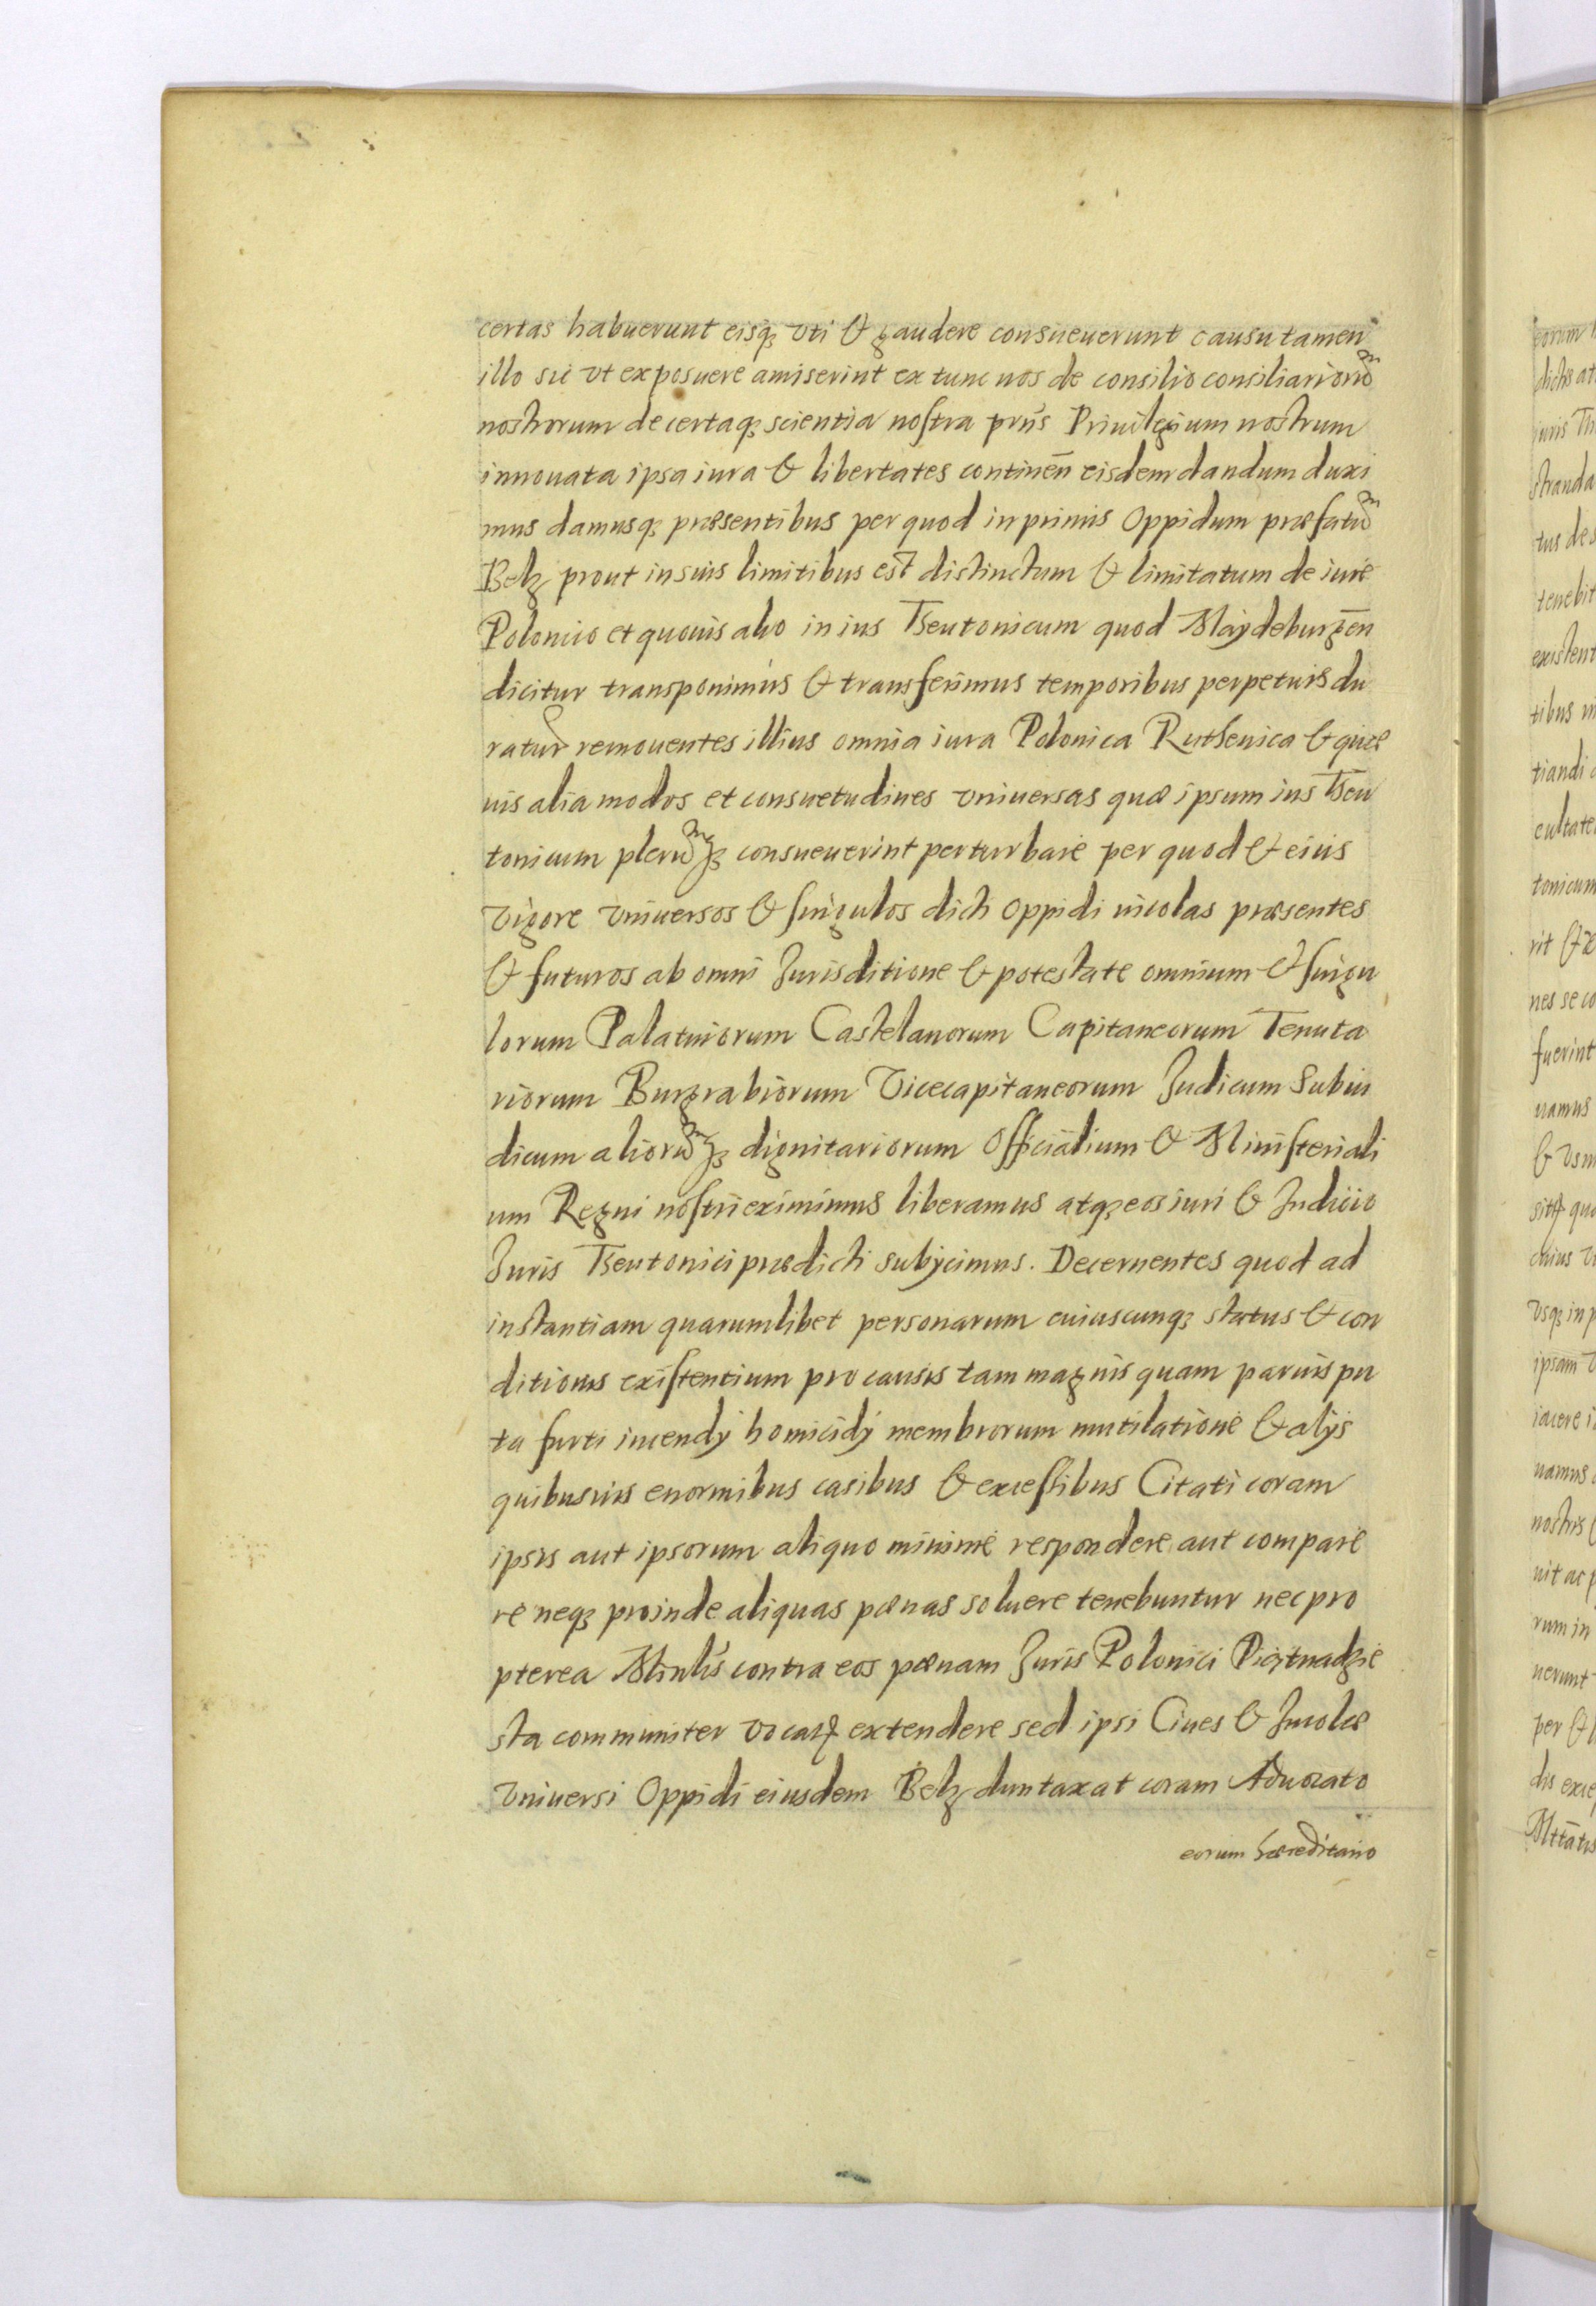 certas habuerunt eisq; vti & gaudere consueuerunt causu tamen
illo sic vt exposuere amiserint ex tunc nos de consilio consiliarioru͂
nostrorum de certaq; scientia nostra pn̄s Priuilegium nostrum
innouata ipsa iura & libertates continen̄ eisdem dandum duxi
mus damusq; præsentibus per quod in primis Oppidum præfatu͂
Belz prout in suis limitibus est distinctum & limitatum de iure
Polonico et quouis alio in ius Theutonicum quod Maydeburgen̄
dicitur transponimus & transferimus temporibus perpetuis du
ratur͂ remouentes illius omnia iura Polonica Ruthenica & quæ
uis alia modos et consuetudines vniuersas quæ ipsum ius Theu
tonicum pleru͂q; consueuerint perturbare per quod & eius
vigore vniuersos & singulos dicti Oppidi incolas præsentes
& futuros ab omni Jurisditione & potestate omnium & singu
lorum Palatinorum Castelanorum Capitaneorum Tenuta
riorum Burgrabiorum Vicecapitaneorum Judicum Subiu
dicum alioru͂q; dignitariorum Officialium & Ministeriali
um Regni nostri eximimus liberamus atq; eos iuri & Judicio
Juris Theutonici prædicti subycimus. Decernentes quod ad
instantiam quarumlibet personarum cuiuscunq; status & con
ditionis existentium pro causis tam magnis quam paruis pu
ta furti incendÿ homicidÿ membrorum mutilatione & alÿs
quibusuis enormibus casibus & excessibus Citati coram
ipsis aut ipsorum aliquo minime respondere aut compare
re neq; proinde aliquas pœnas soluere tenebuntur nec pro
pterea contra eos pœnam Juris Polonici Piętnadzie
sta communiter vocat͂ extendere sed ipsi Ciues & Incolæ
vniuersi Oppidi eiusdem Belz duntaxat coram Aduocato
eorum hæreditario
eorum
dictis
iuris
tus
tenebit
existent
tibus
tiandi
tonicum
rit
nes se
fuerint
uamus
&
cuius
vsq; in
ipsam
iacere
uamus
nostris
uit ac
rum in
uerunt
per &